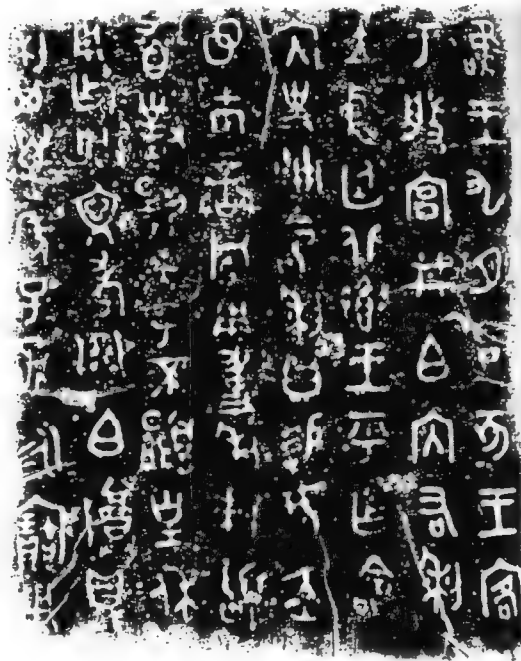 唯王九月丁亥王客
于般宮井白內右利
立中廷北鄉王乎乍命
內史冊命利曰易女赤
市䜌旂用事利拜𩒨
首對揚天子不顯皇休
用乍朕文考白尊鼎
利其萬年子孫永寶用